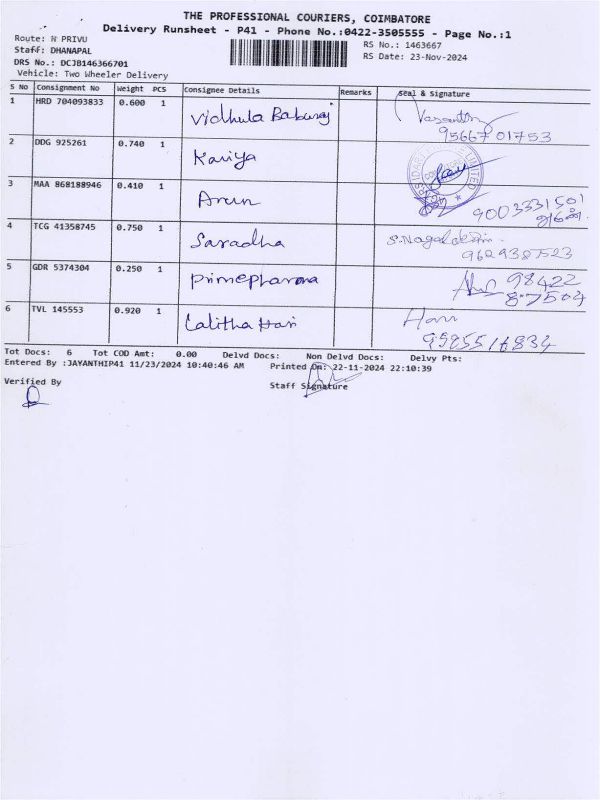 THE PROFESSIONAL COURIERS, COIMBATORE
Delivery Runsheet - P41 - Phone No.:0422-3505555 - Page No.:1
Route: N PRIVU
RS No.: 1463667
Staff: DHANAPAL
RS Date: 23-Nov-2024
DRS No.: DCJB146366701
Vehicle: Two Wheeler Delivery
S No Consignment No Weight PCS Consignee Details Remarks Seal & Signature
1 HRD 704093833 0.600 1 Vidhula Baburaj Vasanth
9566701753
2 DDG 925261 0.740 1 Kaviya
3 MAA 868188946 0.410 1 Arun 9003331501
அருண்.
4 TCG 41358745 0.750 1 Saradha S.Nagalakshmi
9629387523
5 GDR 5374304 0.250 1 Primepharma 98422
87504
6 TVL 145553 0.920 1 Lalitha Hari Hari
9585516834
Tot Docs: 6 Tot COD Amt: 0.00 Delvd Docs: Non Delvd Docs: Delvy Pts:
Entered By :JAYANTHIP41 11/23/2024 10:40:46 AM Printed On: 22-11-2024 22:10:39
Verified By
Staff Signature